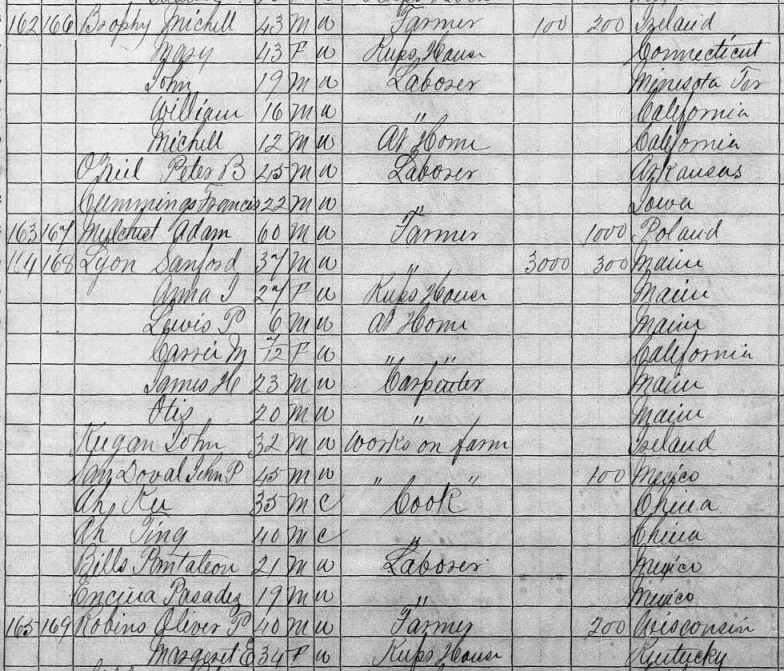 162 166 Brophy Michell 43 M W Farmer 100 200 Ireland
Mary 43 F W Keeps House Connecticut
John 19 M W Laborer Minesota Ter
William 16 M W " California
Michell 12 M W At Home California
ONeil Peter B 45 M W Laborer Arkansas
Cummings Francis 22 M W " Iowa
163 167 Adam 60 M W Farmer 1000 Poland
164 168 Lyon Sanford 37 M W " 3000 300 Maine
Anna J 27 F W Keeps House Maine
Lewis P 6 M W At Home Maine
Carrie M 7/12 F W " " California
James H 23 M W Carpenter Maine
Otis 20 M W " Maine
Keegan John 32 M W Works on farm Ireland
John P 45 M W " " 100 Mexico
Ah Ku 35 M C Cook China
Ah Ting 40 M C " China
Bills Pantaleon 21 M W Laborer Mexico
Encina Pasadez 19 M W " Mexico
165 169 Robins Oliver P 40 M W Farmer 200 Wisconsin
Margaret E 34 F W Keeps House Kentucky